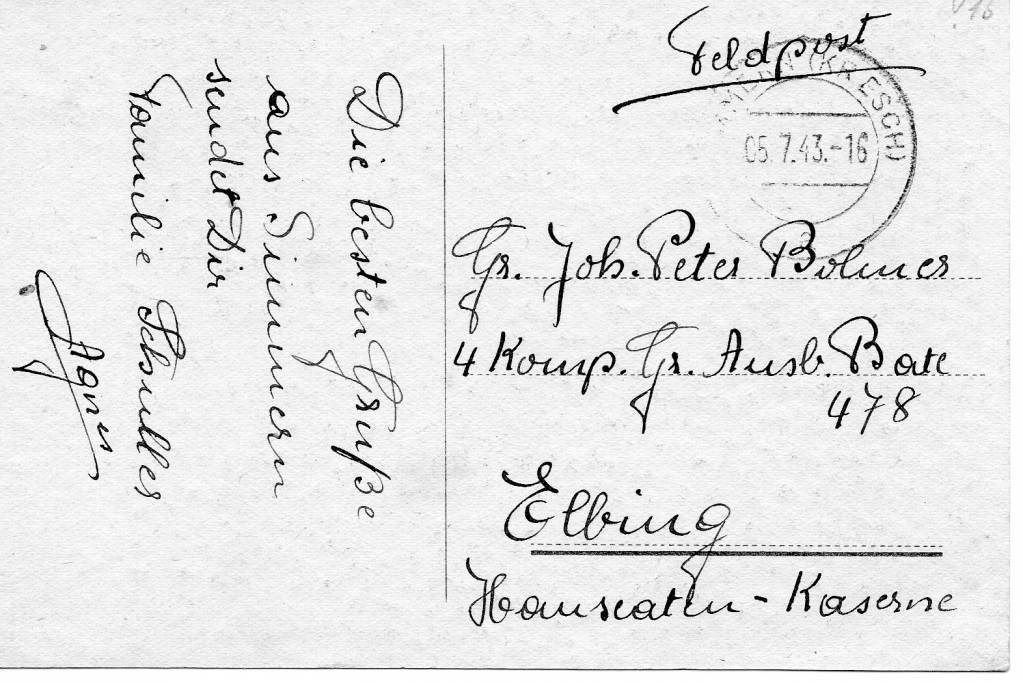 Feldpost
(KR ESCH)
05.7.43.-16
Gr. Joh. Peter Bolmer
4 Komp. Gr. Ausb. Batl
478
Elbing
Hanseaten - Kaserne
Die besten Grüße
aus Simmern
sendet Dir
Familie Schuller
Agnes